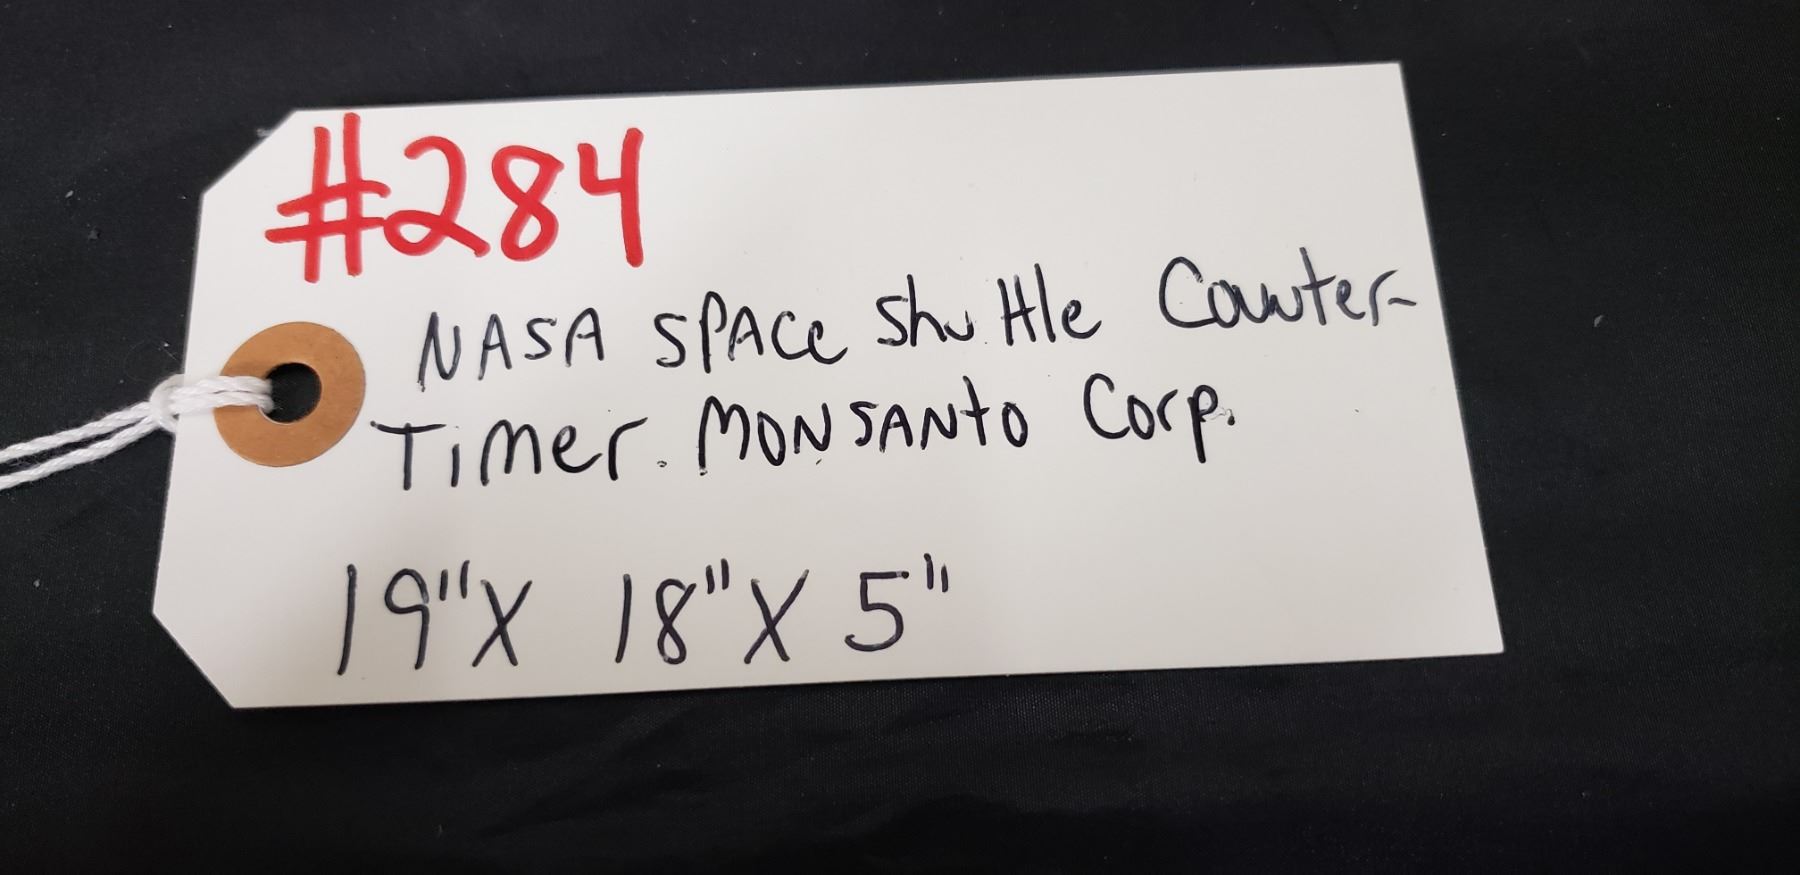 #284
NASA SPACe Shuttle Counter-
Timer. MONSANto Corp.
19"X 18"X 5"